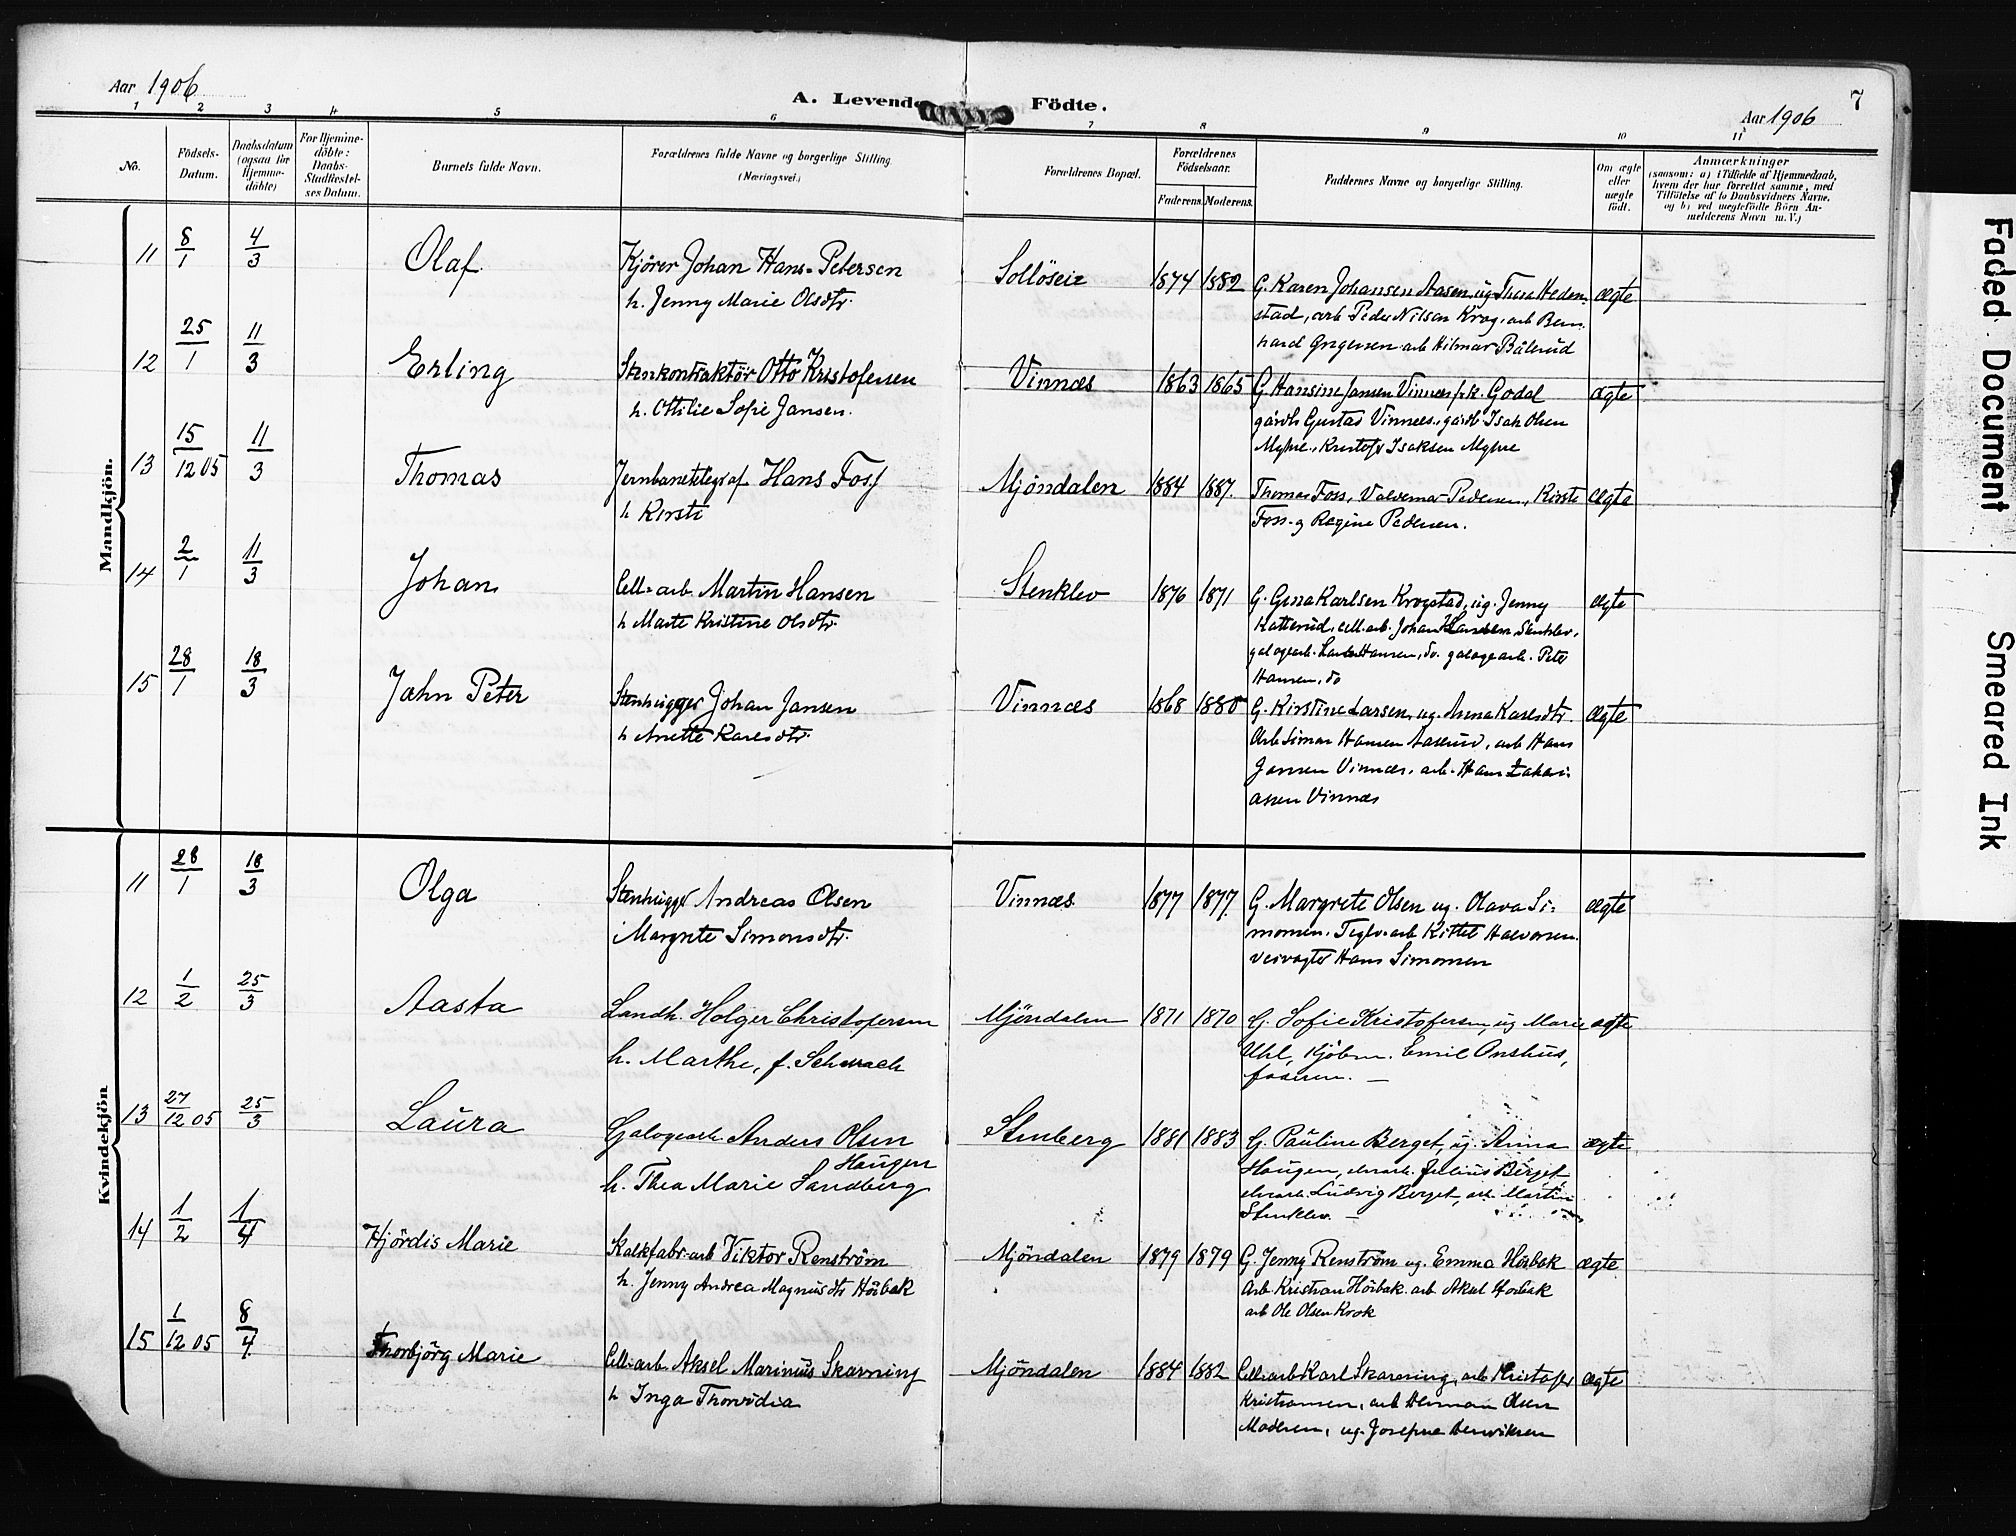 Aar 1906
A. Levende Födte.
7
Aar 1906
1 2 3 4 5 6 7 8 9 10 11
No.
Födsels-Datum.
Daabsdatum (ogsaa for Hjemme-döbte)
For Hjemme-döbte: Daabs-Stadfæstel-ses Datum.
Barnets fulde Navn.
Forældrenes fulde Navne og borgerlige Stilling.
(Næringsvei.)
Forældrenes Bopæl.
Forældrenes Födselsaar.
Faderens. Moderens.
Faddernes Navne og borgerlige Stilling.
Om ægte eller uægte födt.
Anmærkninger
(saasom: a) i Tilfælde af Hjemmedaab,
hvem der har forrettet samme, med
Tilföielse af to Daabsvidners Navne.
og b) ved uægtefödte Börn An-
melderens Navn m. V.)
Mandkjön.
11 8/1 4/3 Olaf Kjörer Johan Hans-Petersen Sollöseie 1874 1882 G. Karen Johansen Aasen, ug. Thea Heden- ægte
h. Jenny Marie Olsdtr. stad, arb Peder Nilsen Krog, arb Bern-
hard arb Hilmar Bålerud
12 25/1 11/3 Erling Stenkontraktör Otto Kristofersen Vinnæs 1863 1865 G Hansine Jansen Vinnæs, p.k. Godal ægte
h. Ottilie Sofie Jansen. gårdb Gustav Vinnæs, gårdb Isak Olsen
Myhre, Kristofer Isaksen Myhre
13 15/12 05 11/3 Thomas Jernbanetelegraf Hans Foss Mjöndalen 1884 1887. Thomas Foss, Valdemar Pedersen, Kirsti ægte
h Kirsti Foss og Ragine Pedersen.
14 2/1 11/3 Johan Cell-arb. Martin Hansen Stenklev 1876 1871 G. Gina Karlsen Krogstad, ug. Jenny ægte
h Marte Kristine Olsdtr. Katterud, cell.arb. Johan Stenklev,
galogearb. Hansen, do. galogearb. Peter
Hansen, do
15 28/1 18/3 Jahn Peter Stenhugger Johan Jansen Vinnæs 1868 1880 G. Kirstine Larsen, ug. Anna Karlsdtr. ægte
h Anette Karlsdtr. Arb Simon Hansen Aaserud, arb Hans
Jansen Vinnæs, arb. Hans Zakari-
assen Vinnæs
Kvindekjön
11 28/1 18/3 Olga Stenhugger Andreas Olsen Vinnæs 1877 1877. G. Margrete Olsen ug. Olava Si- ægte
Margrete Simonsdtr. monsen. Teglv.arb Kittel Halvorsen.
veivogter Hans Simonsen
12 1/2 25/3 Aasta Landh. Holger Christofersen Mjöndalen 1871 1870 G. Sofie Kristofersen, ug Marie ægte
h. Marthe, f. Schwach Uhl, Kjöbm. Emil Onshus,
faderen. —
13 27/12 05 25/3 Laura Galogearb Anders Olsen Stenberg 1881 1883 G. Pauline Berget, ug. Anna ægte
Haugen
h. Thea Marie Sandberg Haugen, Julius Berget,
Ludvig Berget, arb. Martin
Stenklev. —
14 1/2 1/4 Hjördis Marie Kalkfabr-arb Viktor Renström Mjöndalen 1879 1879 G. Jenny Renström ug. Emma Hörbak ægte
h. Jenny Andrea Magnusdtr Hörbak Arb Kristian Hörbak. arb Aksel Horbak
arb Ole Olsen Krok
15 1/12 05 8/4 Thorbjörg Marie Cell-arb Aksel Marinius Skarning Mjöndalen 1884 1882 Cell-arb Karl Skarning, arb Kristofer ægte
h Inga Kristiansen, arb Herman Olsen
Moderen, ug. Josefine Henriksen
Faded Document
Smeared Ink